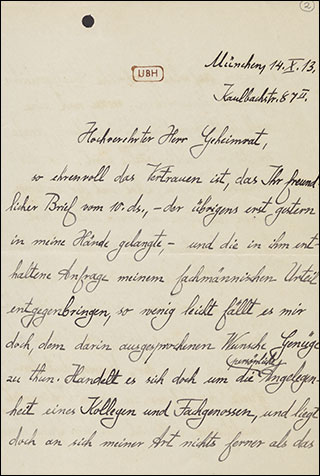 2
München, 14. X. 13.
UBH
Kaulbachstr. 87 II.
Hochverehrter Herr Geheimrat,
so ehrenvoll das Vertrauen ist, das Ihr freund
licher Brief vom 10. ds., – der übrigens erst gestern
in meine Hände gelangte, – und die in ihm ent
haltene Anfrage meinem fachmännischen Urteil
entgegenbringen, so wenig leicht fällt es mir
doch, dem darin ausgesprochenen Wunsche Genüge
zu thun. Handelt es sich doch um die persönliche Angelegen-
heit eines Kollegen und Fachgenossen, und liegt
doch an sich meiner Art nichts ferner als das